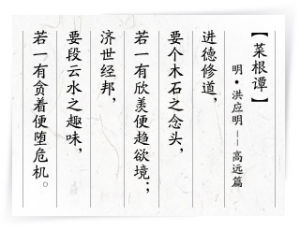 【菜根谭】
明•洪应明--高远篇
进德修道，
要个木石之念头，
若一有欣羡便趋欲境；
济世经邦，
要段云水之趣味，
若一有贪着便堕危机。